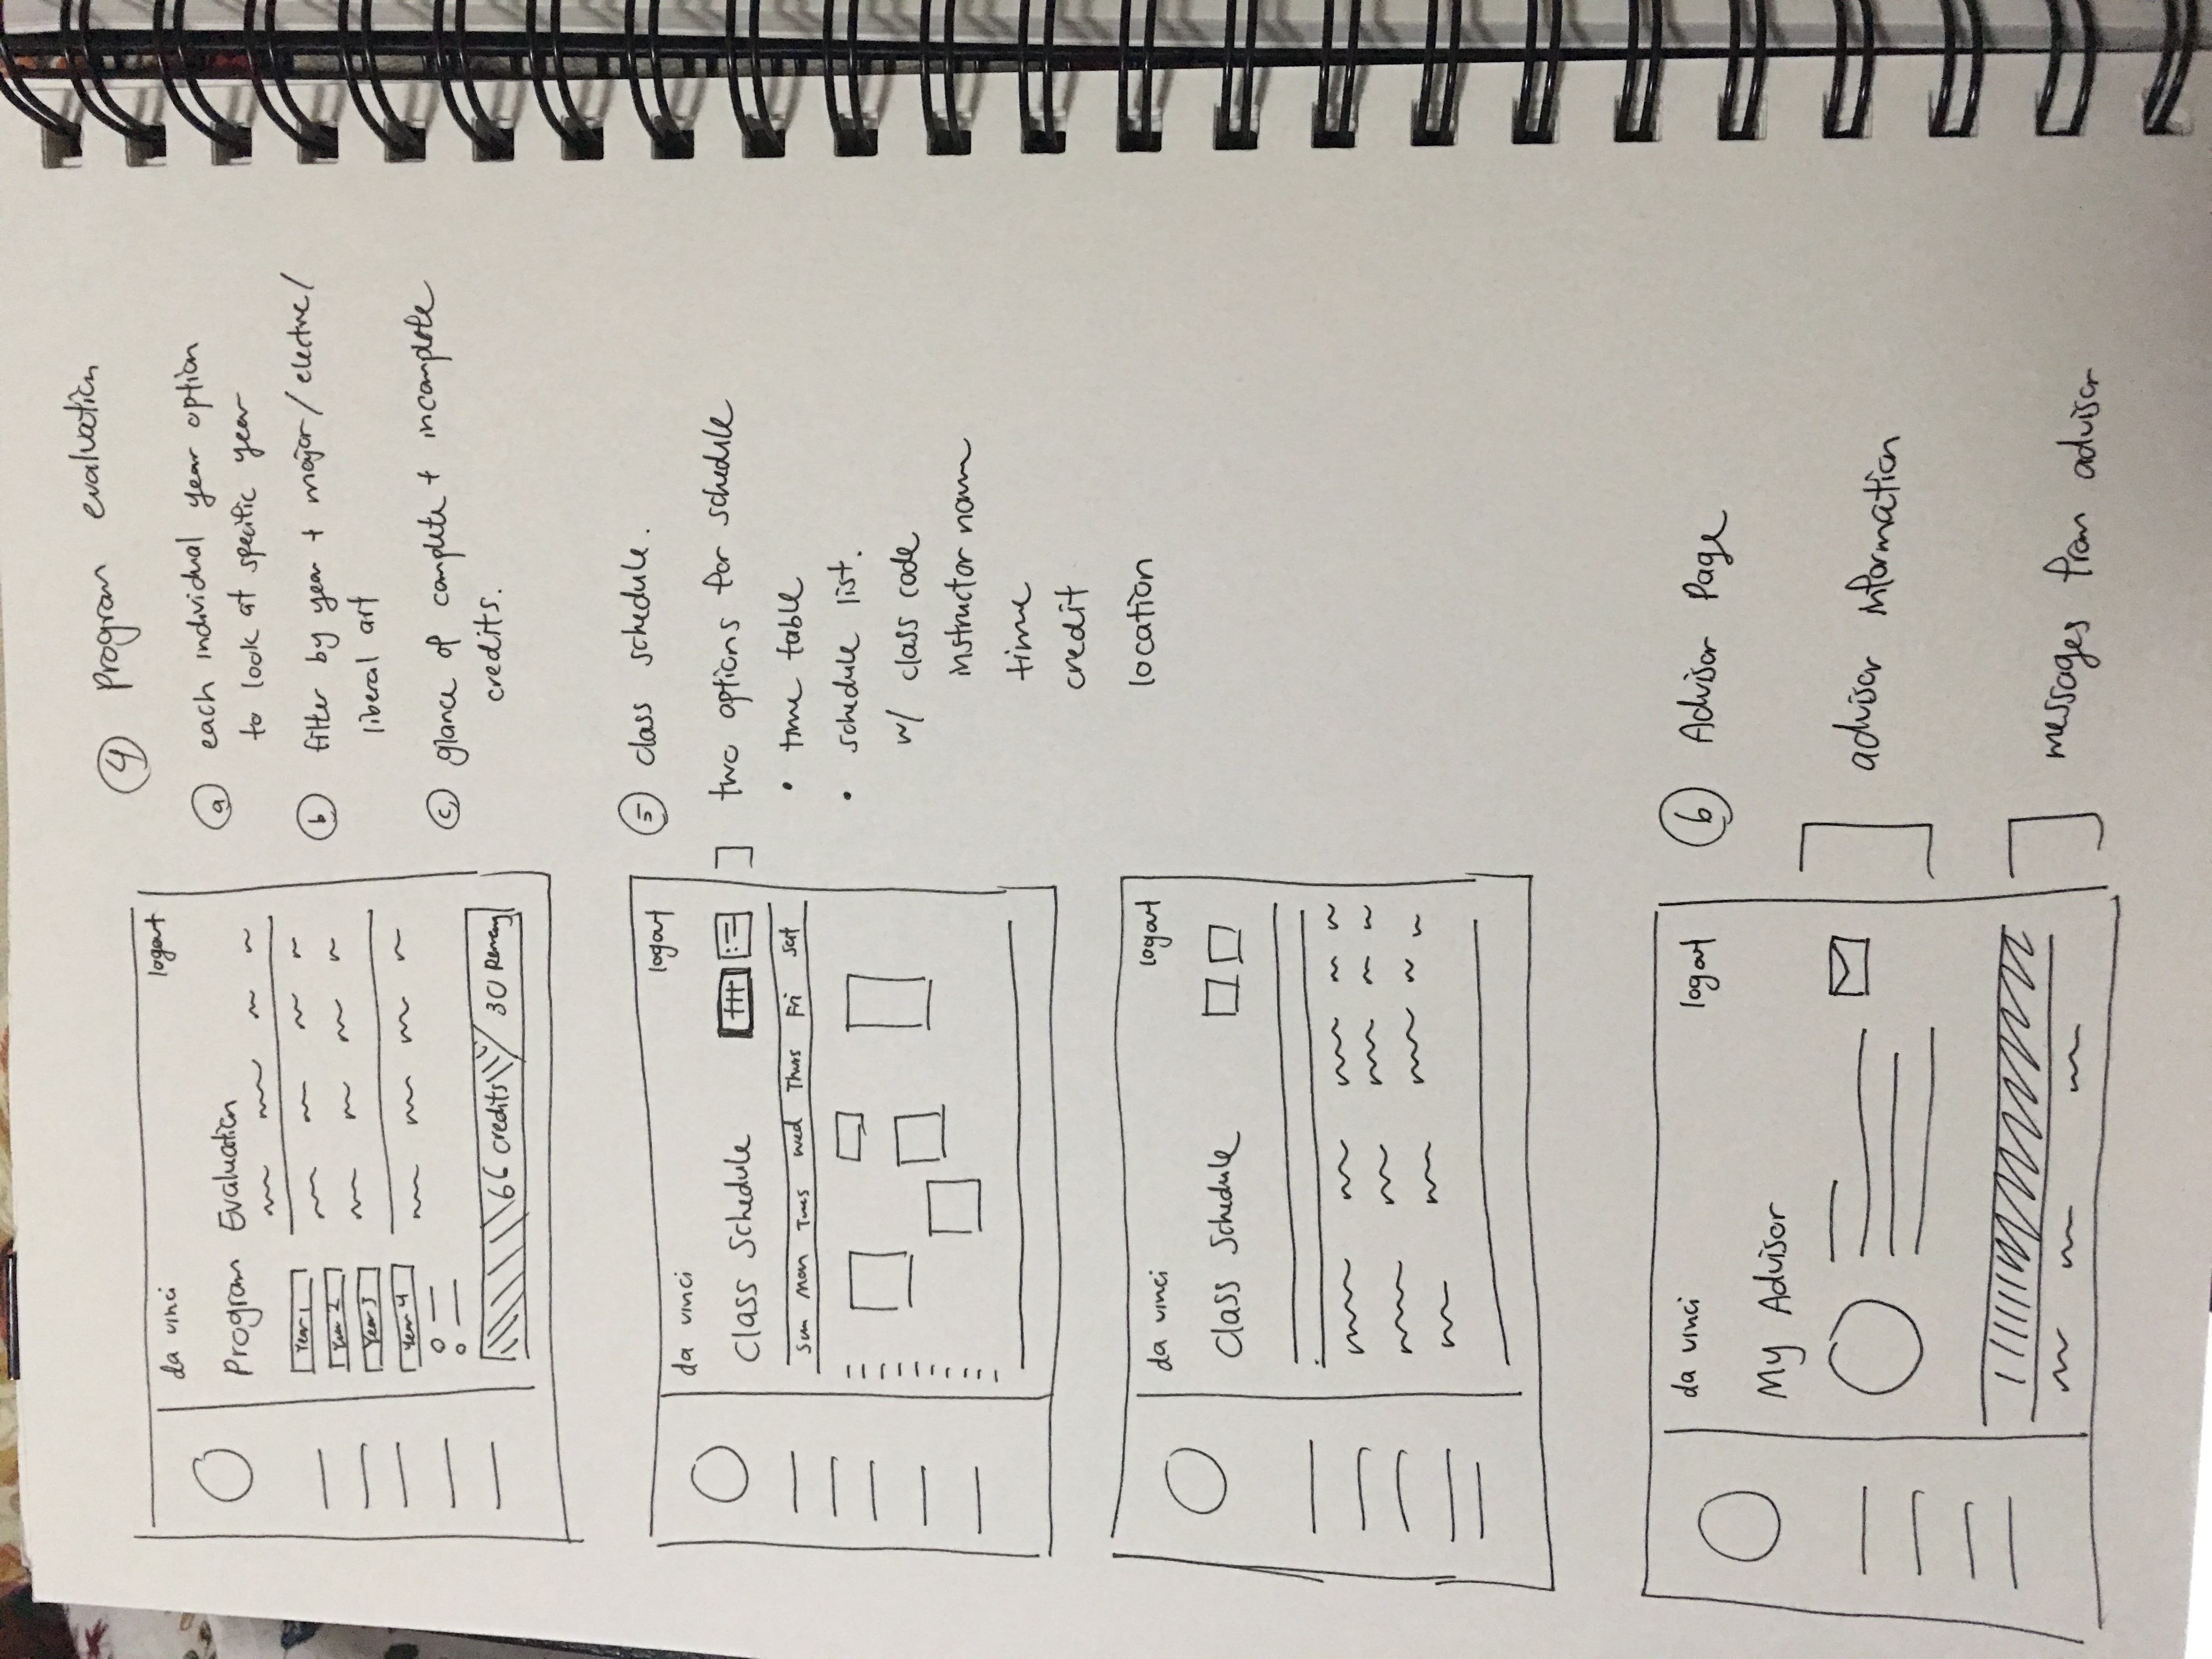 da vinci
logout
Program Evaluation
Year 1
Year 2
Year 3
Year 4
66 credits
30
④ Program evaluation
ⓐ each individual year option
to look at specific year
ⓑ filter by year + major / elective /
liberal art
ⓒ glance of complete + incomplete
credits.
da vinci
logout
Class Schedule
Sun Mon Tues Wed Thurs Fri Sat
⑤ class schedule.
two options for schedule
• time table
• schedule list.
w/ class code
instructor name
time
credit
location
da vinci
logout
Class Schedule
da vinci
logout
My Advisor
⑥ Advisor Page
advisor information
messages from advisor